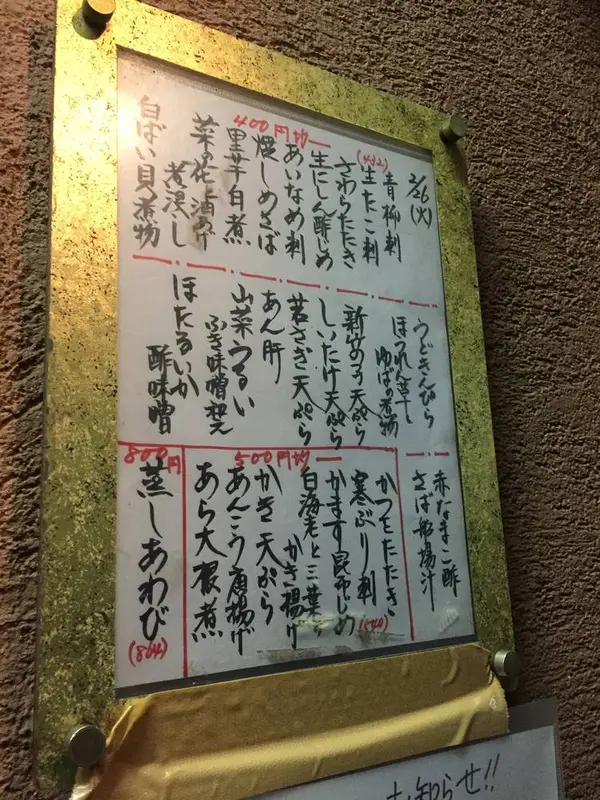 2/26(火)
400円均一
(432)
青柳刺
生たこ刺
さわらたたき
生にしん酢じめ
あいなめ刺
燻しめさば
里芋白煮
菜の花酒蒸し
煮浸し
白ばい貝煮物
うどきんぴら
ほうれん草と
ゆばの煮物
新竹の子天ぷら
しいたけ天ぷら
若さぎ天ぷら
あん肝
山菜うるい
ふき味噌和え
ほたるいか
酢味噌
赤なまこ酢
さば船場汁
500円均一
(540)
かつをたたき
寒ぶり刺
かます昆布じめ
白海老と三葉の
かき揚げ
かき天ぷら
あんこう唐揚げ
あら大根煮
800円
蒸しあわび
(864)
お知らせ!!